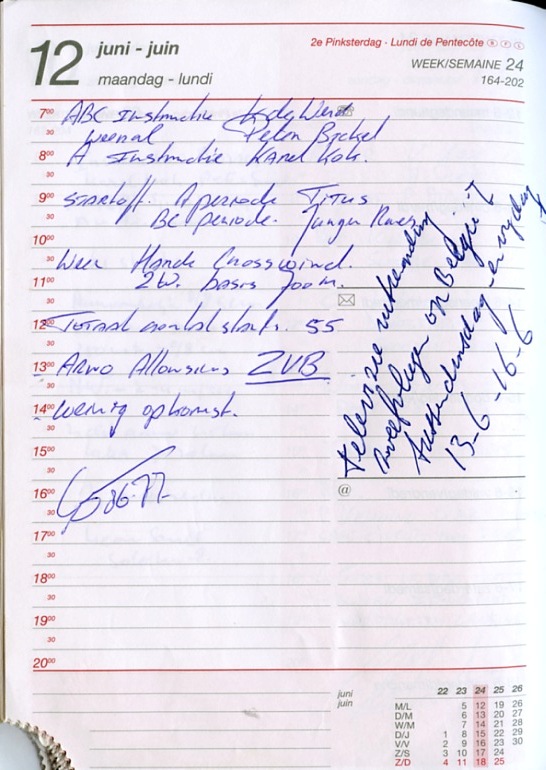 12 juni - juin
maandag - lundi
2e Pinksterdag · Lundi de Pentecôte
WEEK/SEMAINE 24
164-202
7⁰⁰ ABC Instructie
30
8⁰⁰ A Instructie Karel Kok.
30
9⁰⁰ Startoff. A periode Titus
30 BC periode. Junger
10⁰⁰
30 Weer Harde Crosswind.
11⁰⁰ ZW. basis 700 m.
30
12⁰⁰ Totaal aantal starts. 55
30
13⁰⁰ Arno Allonsius ZVB
30
14⁰⁰ Weinig opkomst.
30
15⁰⁰
30
16⁰⁰
30
17⁰⁰
30
18⁰⁰
30
19⁰⁰
30
20⁰⁰
Televisie uitzending
zweefvliegen op België
dinsdag en vrijdag
13-6 - 16-6
@
juni
juin
22 23 24 25 26
M/L 5 12 19 26
D/M 6 13 20 27
W/M 7 14 21 28
D/J 1 8 15 22 29
V/V 2 9 16 23 30
Z/S 3 10 17 24
Z/D 4 11 18 25